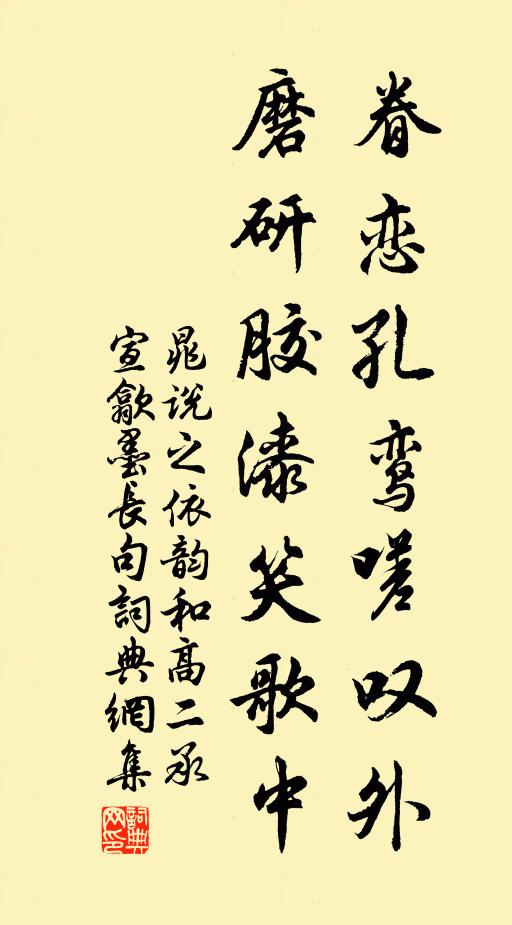 眷恋孔鸾嗟叹外
磨研胶漆笑歌中
晁说之依韵和高二承
宣歙墨长句詞典網集
詞典网印